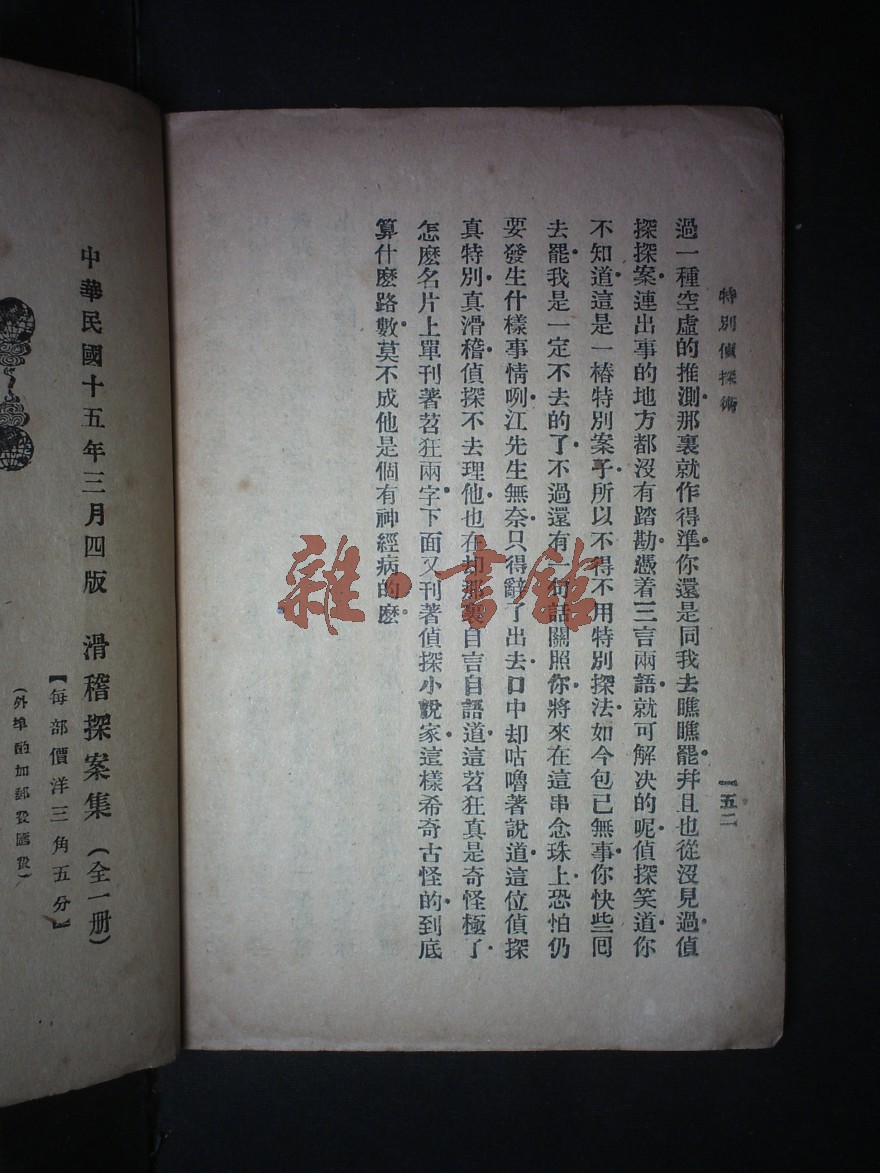 特別偵探術
一五二
過一種空虛的推測那裏就作得準你還是同我去瞧瞧罷幷且也從沒見過偵
探探案連出事的地方都沒有踏勘憑着三言兩語就可解决的呢偵探笑道你
不知道這是一椿特別案子所以不得不用特別探法如今包已無事你快些囘
去罷我是一定不去的了不過還有一句話關照你將來在這串念珠上恐怕仍
要發生什樣事情咧江先生無奈只得辭了出去口中却咕嚕著說道這位偵探
真特別真滑稽偵探不去理他也在却那裏自言自語道這苕狂真是奇怪極了
怎麽名片上單刊著苕狂兩字下面又刊著偵探小說家這樣希奇古怪的到底
算什麽路數莫不成他是個有神經病的麽
雜·書館
中華民國十五年三月四版
滑稽探案集（全一册）
【每部價洋三角五分】
（外埠酌加郵費匯費）